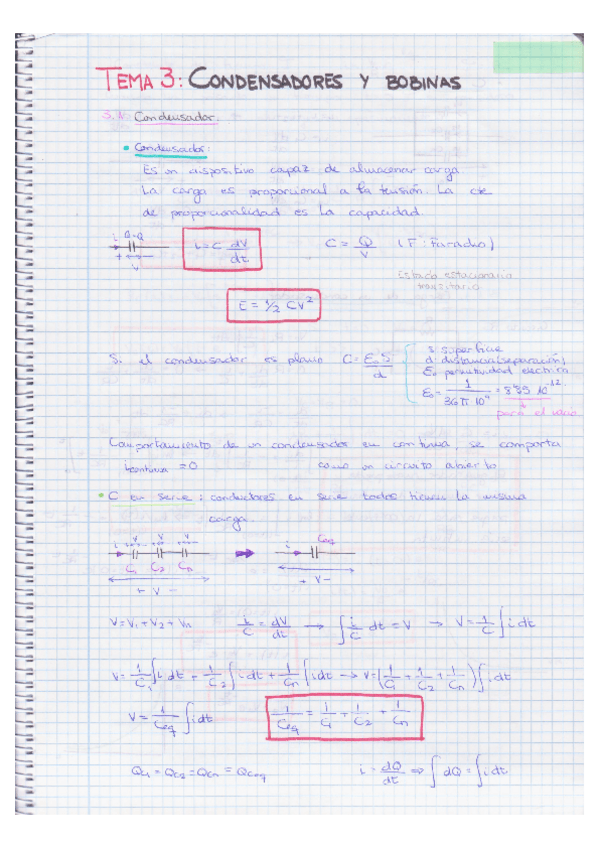 TEMA 3: CONDENSADORES Y BOBINAS
3.1. Condensador.
• Condensador:
Es un dispositivo capaz de almacenar carga.
La carga es proporcional a la tensión. La cte
de proporcionalidad es la capacidad.
i Q -Q
+ -
V
i = C dV/dt
C = Q/V (F: Faradio)
Estado estacionario
transitorio
E = 1/2 CV²
Si el condensador es plano C = ε₀S/d
s: superficie
d: distancia (separación)
ε₀ permitividad eléctrica
ε₀ = 1/36π 10⁹ = 8'85 10⁻¹².
para el vacío
Comportamiento de un condensador en continua, se comporta
icontinua = 0 como un circuito abierto
• C en serie: conductores en serie todos tienen la misma
carga.
i V V V
C₁ C₂ Cn
+ V -
i Ceq
+ V -
V = V₁ + V₂ + Vn i/C = dV/dt → ∫ i/C dt = V → V = 1/C ∫ i dt
V = 1/C₁ ∫ i dt + 1/C₂ ∫ i dt + 1/Cn ∫ i dt → V = (1/C₁ + 1/C₂ + 1/Cn) ∫ i dt
V = 1/Ceq ∫ i dt
1/Ceq = 1/C₁ + 1/C₂ + 1/Cn
QC₁ = QC₂ = QCn = QCeq i = dQ/dt ⇒ ∫ dQ = ∫ i dt